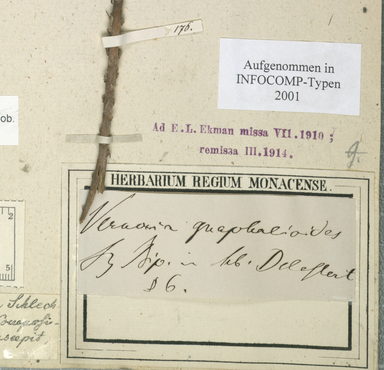 176.
Aufgenommen in
INFOCOMP-Typen
2001
ob.
Ad E. L. Ekman missa VII. 1910 ;
remissa III. 1914.
HERBARIUM REGIUM MONACENSE.
Vernonia gnaphalioides
Sz Bip. in hb. Delessert
86.
5
Schlech